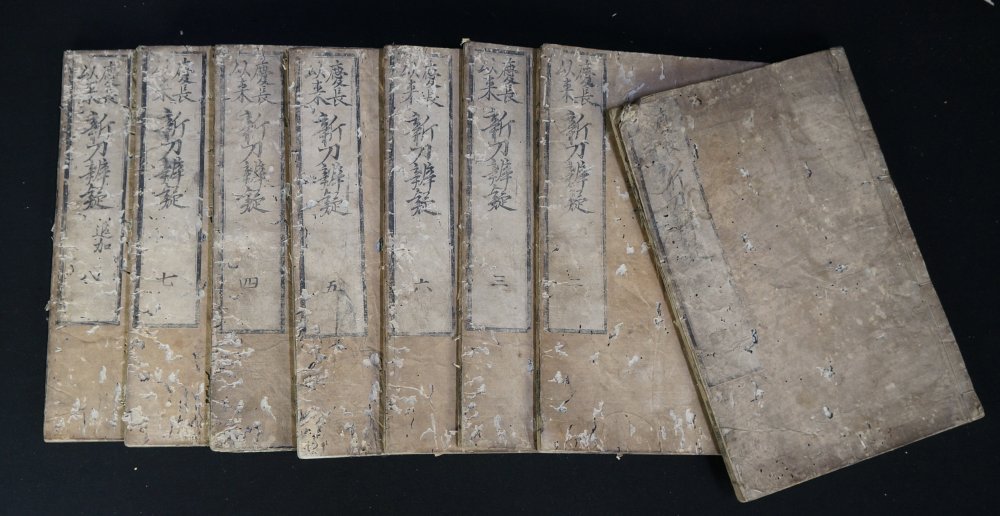 慶長
以来
新刀辨疑
二
慶長
以来
新刀辨疑
三
慶長
以来
新刀辨疑
六
慶長
以来
新刀辨疑
五
慶長
以来
新刀辨疑
四
慶長
以来
新刀辨疑
七
慶長
以来
新刀辨疑
追加
八